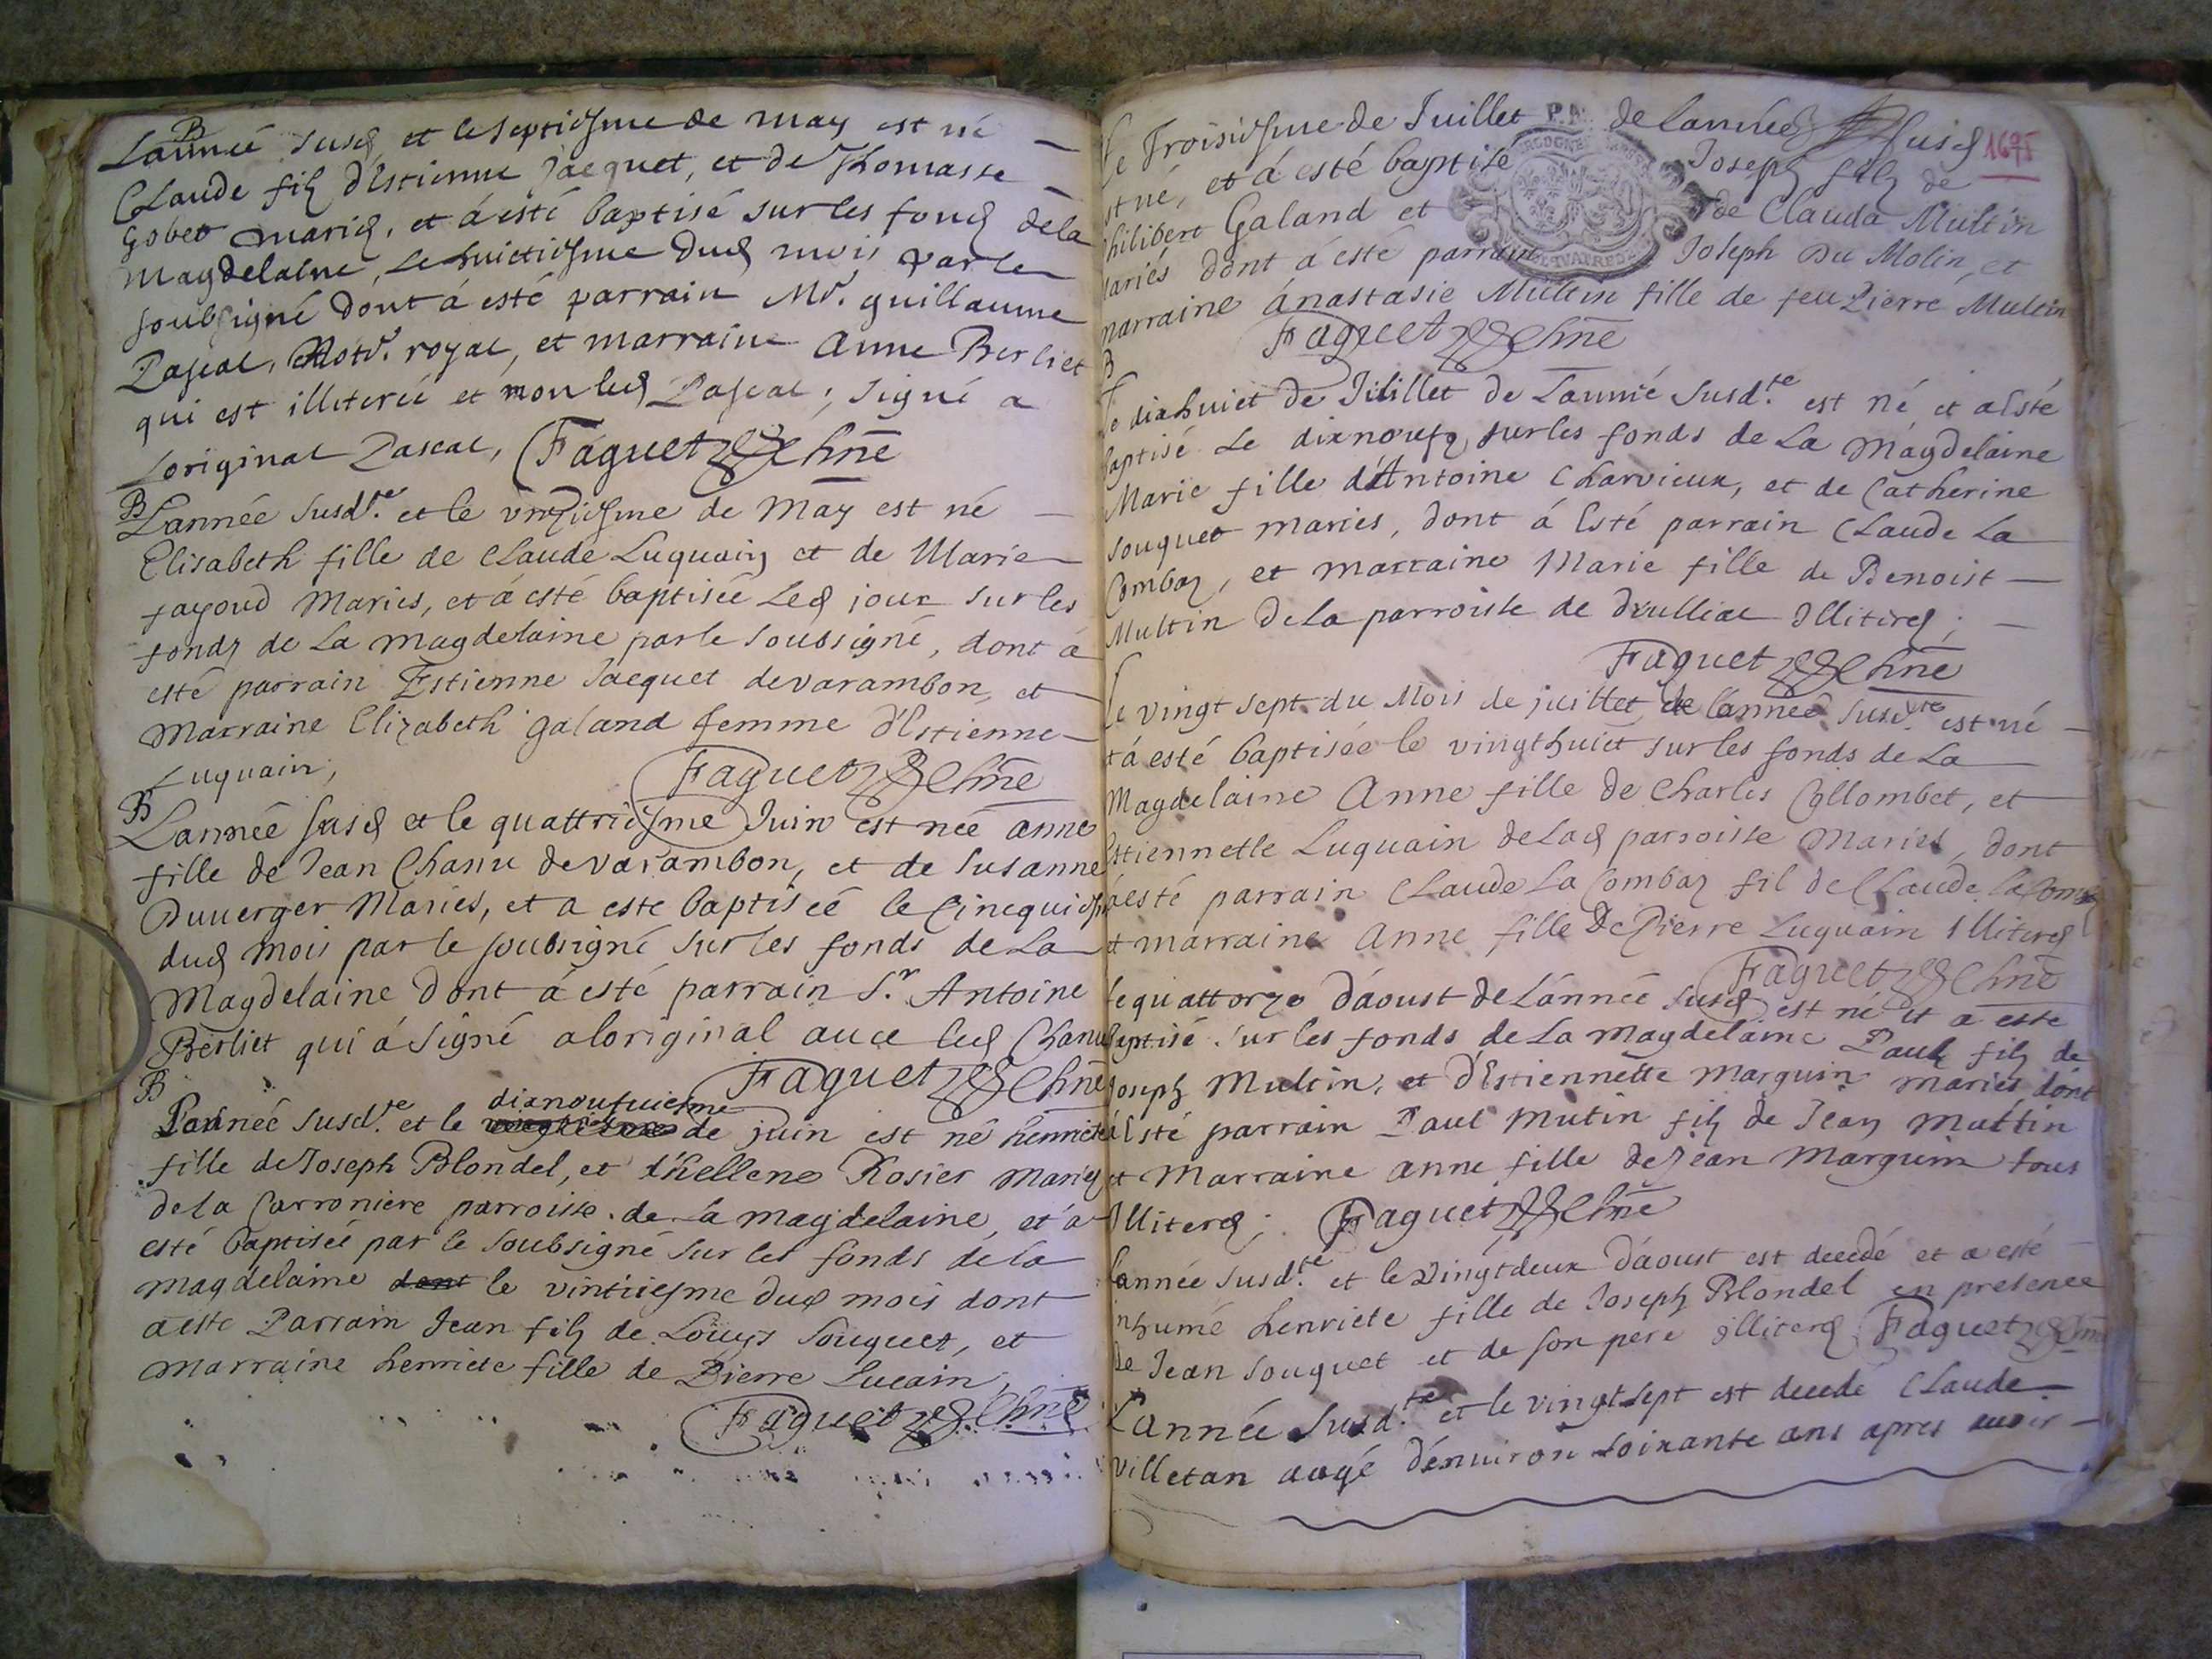 B
Lannée susd et le septiesme de may est né
Claude filz d'Estienne Jacquet, et de Thomasse
Gobet mariés, et á esté baptisé sur les fonds dela
Magdelaine, le huictiesme dud mois par le
soubsigné dont á esté parrain Mr. guillaume
Pascal, Notr. royal, et marraine Anne Berliet
qui est illiterée et non led Pascal; signé a
Loriginal Pascal, Faguet Chne
B
Lannée susd.te et le vnziesme de May est né
Elisabeth fille de Claude Luquain et de Marie
fayoud Mariés, et á esté baptisée Led jour sur les
fonds de La Magdelaine par le soubsigné, dont á
esté parrain Estienne Jacquet de varambon, et
Marraine Elizabeth galand femme d'Estienne
Luquain,
Faguet Chne
B
Lannée susd et le quattriesme Juin est née anne
fille de Jean Chanu de varambon, et de Susanne
Duuerger Mariés, et a esté baptiseé le Cincquiesme
dud mois par le soubsigné sur les fonds de La
Magdelaine dont á esté parrain S.r Antoine
Berliet qui á signé aloriginal auce led Chanu
Faguet Chne
B
dixnoufuiesme
Lannée susd.te et le de juin est né henriete
fille de Joseph Blondel, et d'hellene Rosier Mariés
dela Carroniere parroisse de La magdelaine, et a
esté baptisée par le soubsigné sur les fonds dela
magdelaine dont le vintiiesme dud mois dont
a esté Parrain Jean filz de Louys Souquet, et
marraine henriete fille de Pierre Lucain,
Faguet Chne
1675
Le Troisiesme de Juillet de lannee susd
est né, et á esté baptisé Joseph filz de
Philibert Galand et de Clauda Multin
Mariés dont á esté parrain Joseph Du Molin, et
marraine ánastasie Multin fille de feu Pierre Multin
Faguet Chne
B
Le dixhuict de Juillet de Lannée susd.te est né et a esté
baptisé Le dixnoufz sur les fonds de La Magdelaine
Marie fille d'Antoine Charvieux, et de Catherine
Souquet mariés, dont á Esté parrain Claude La
Combaz, et marraine Marie fille de Benoist
Multin dela parroisse de druilliat Illiterés;
Faguet Chne
Le vingt sept du Mois de juillet de lannée susd.te est né
et á esté baptisée le vingthuict sur les fonds de La
Magdelaine Anne fille de Charles Collombet, et
Estiennette Luquain delad parroisse Mariés, dont
á esté parrain Claude La Combaz fil de Claude la Combaz
et marraine Anne fille De Pierre Luquain Illiterés
Faguet Chne
Le quattorze d'aoust de Lánnée susd est né et a esté
baptisé sur les fonds de La magdelaine Paul filz de
Joseph Multin, et d'Estiennette Marguin mariés dont
á Esté parrain Paul Mutin filz de Jean Multin
et Marraine anne fille de Jean Marguin tous
Illiterés; Faguet Chne
Lannée susd.te et le vingtdeux d'aoust est decedé et a esté
inhumé henriete fille de Joseph Blondel en presence
de Jean Souquet et de son pere illiterés Faguet Chne
Lannée susd.te et le vingtsept est decedé Claude
Villetan aagé d'enuiron soixante ans apres auoir